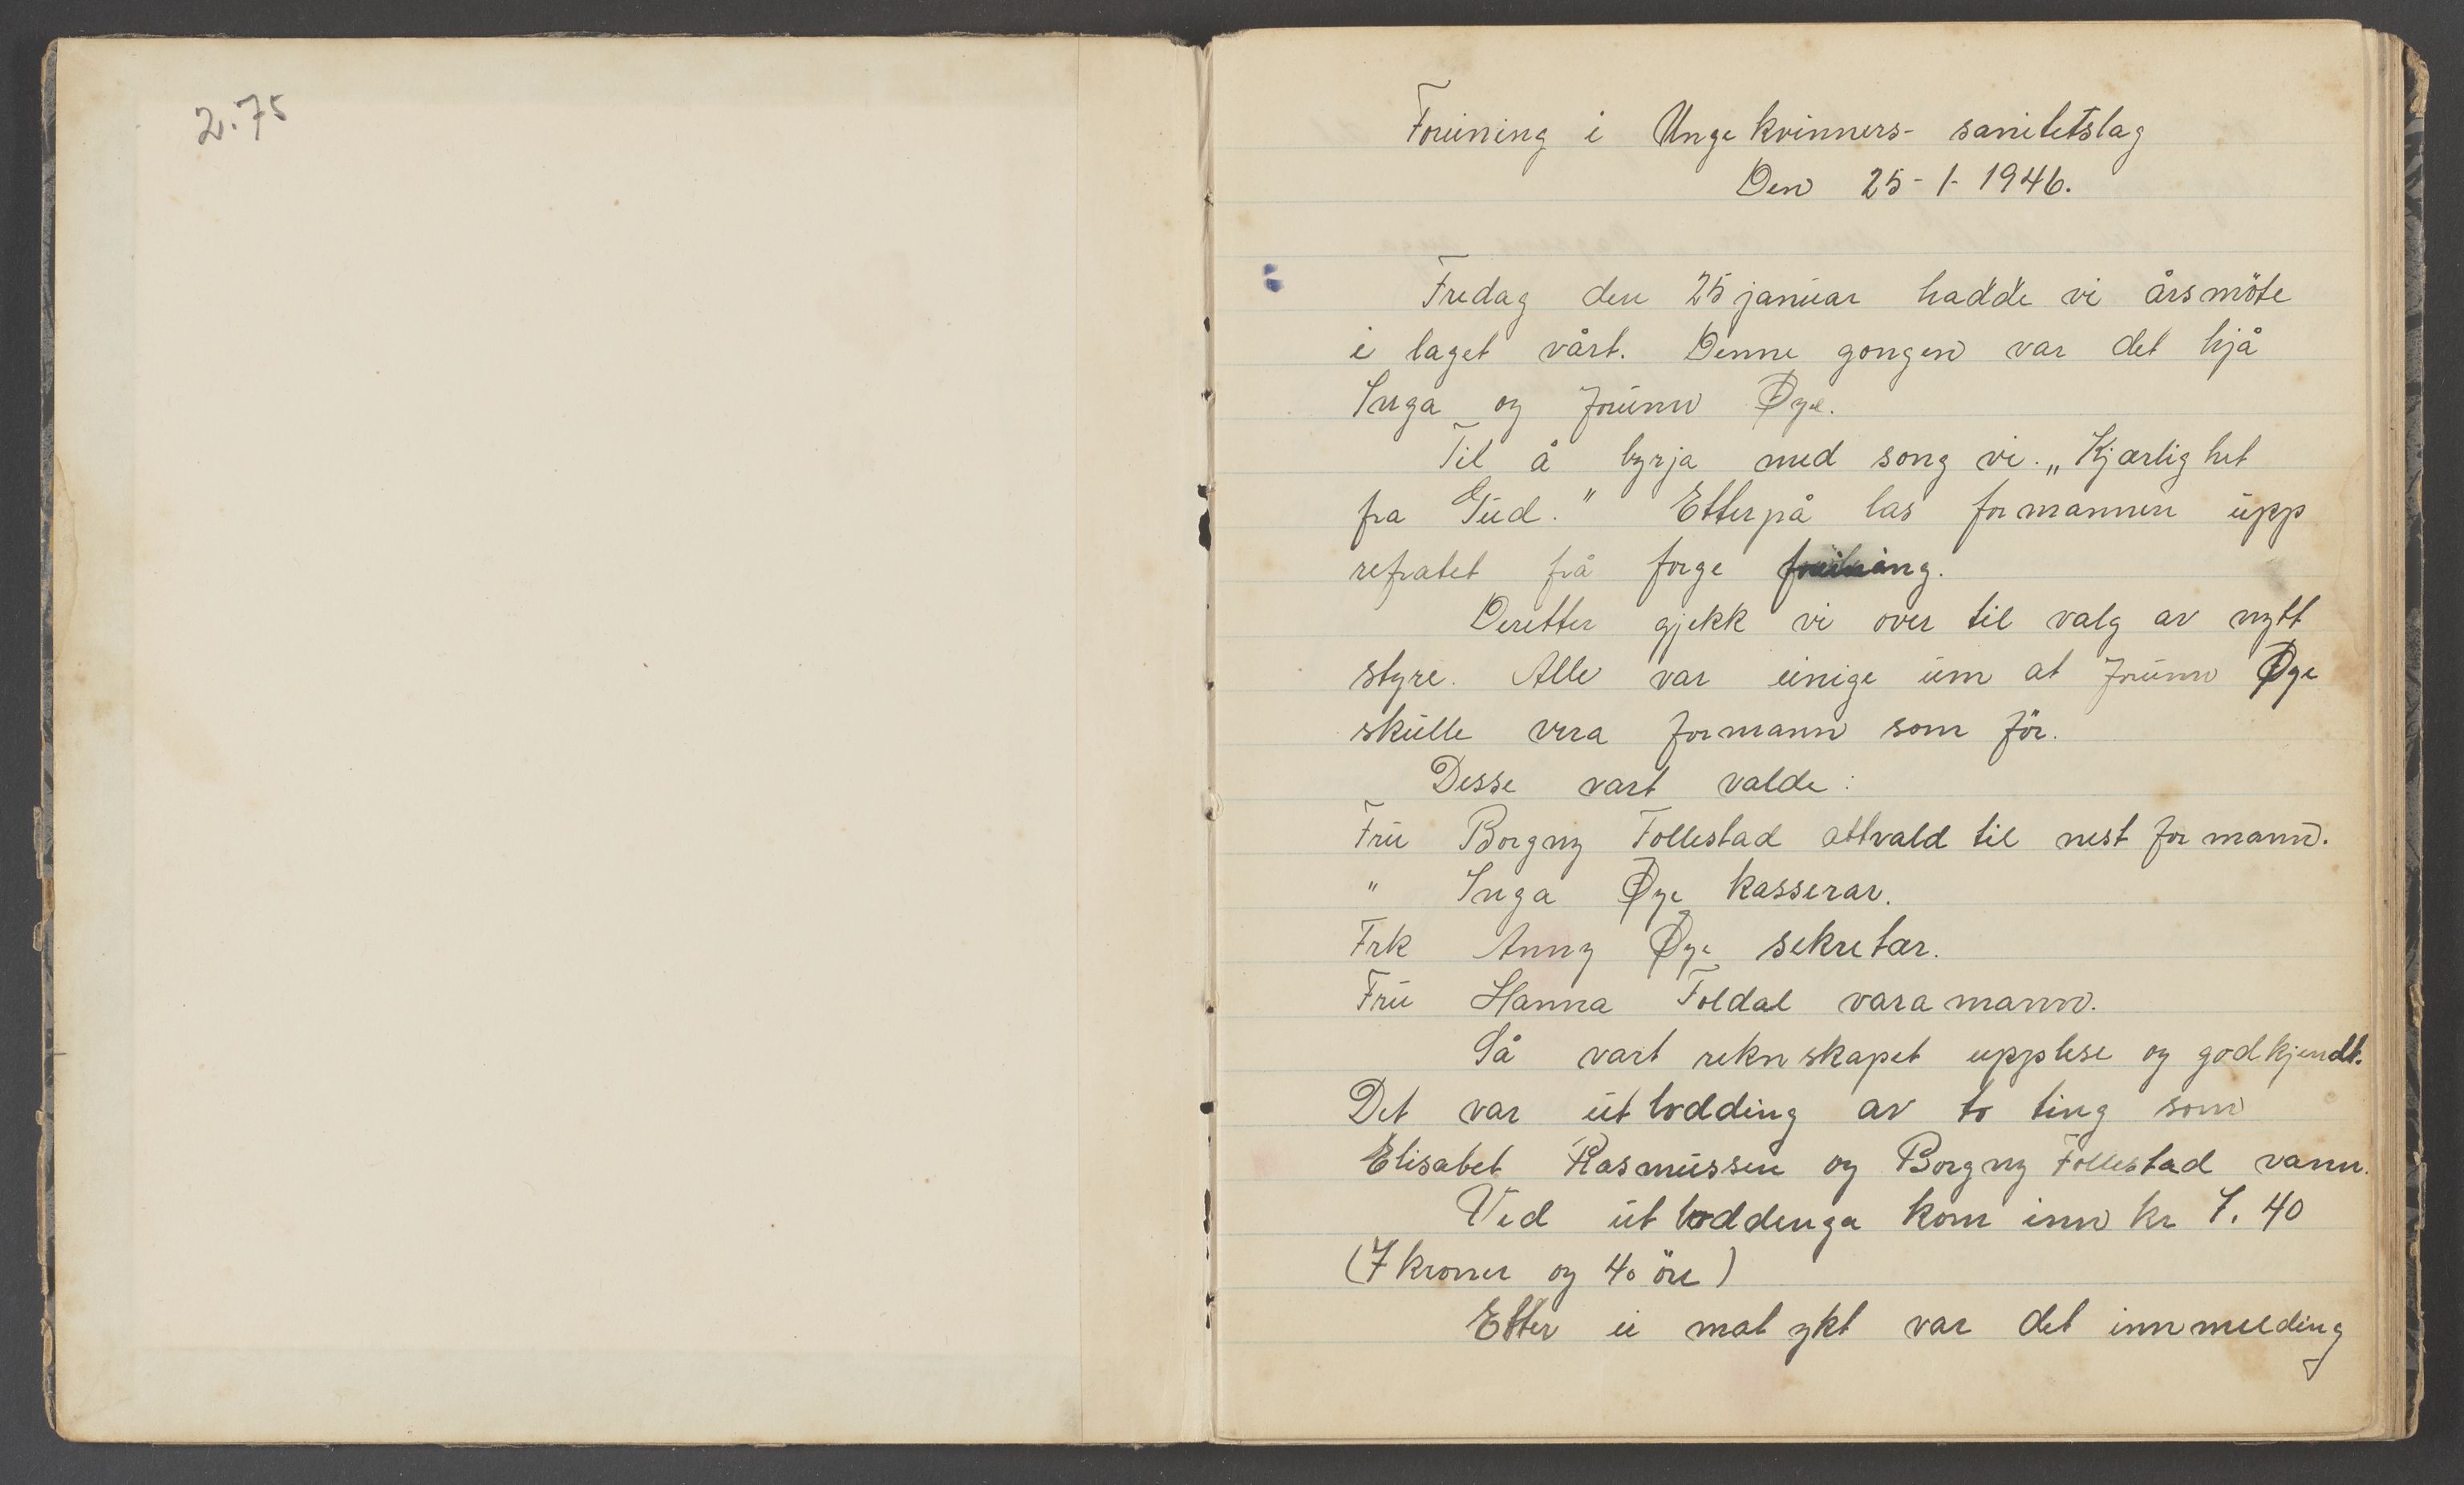 2.75
Foreining i Unge kvinners- sanitetslag
Den 25-1-1946.
Fredag den 25 januar hadde vi årsmöte
i laget vårt. Denne gongen var det hjå
Inga og Jorunn Øye.
Til å byrja med song vi. „Kjærlighet
fra Gud." Etterpå las formannen upp
refratet frå forge foreining.
Deretter gjekk vi over til valg av nytt
styre. Alle var einige um at Jorunn Øye
skulle vera formann som för.
Desse vart valde:
Fru Borgny Follestad attvald til nest formann.
" Inga Øye kasserar.
Frk Anny Øye sekretær.
Fru Hanna Foldal varamann.
Så vart reknskapet upplese og godkjendt.
Det var utlodding av to ting som
Elisabet Rasmussen og Borgny Follestad vann.
Ved utloddenga kom inn kr 7.40
(7 kroner og 40 öre)
Etter ei mat ykt var det innmelding